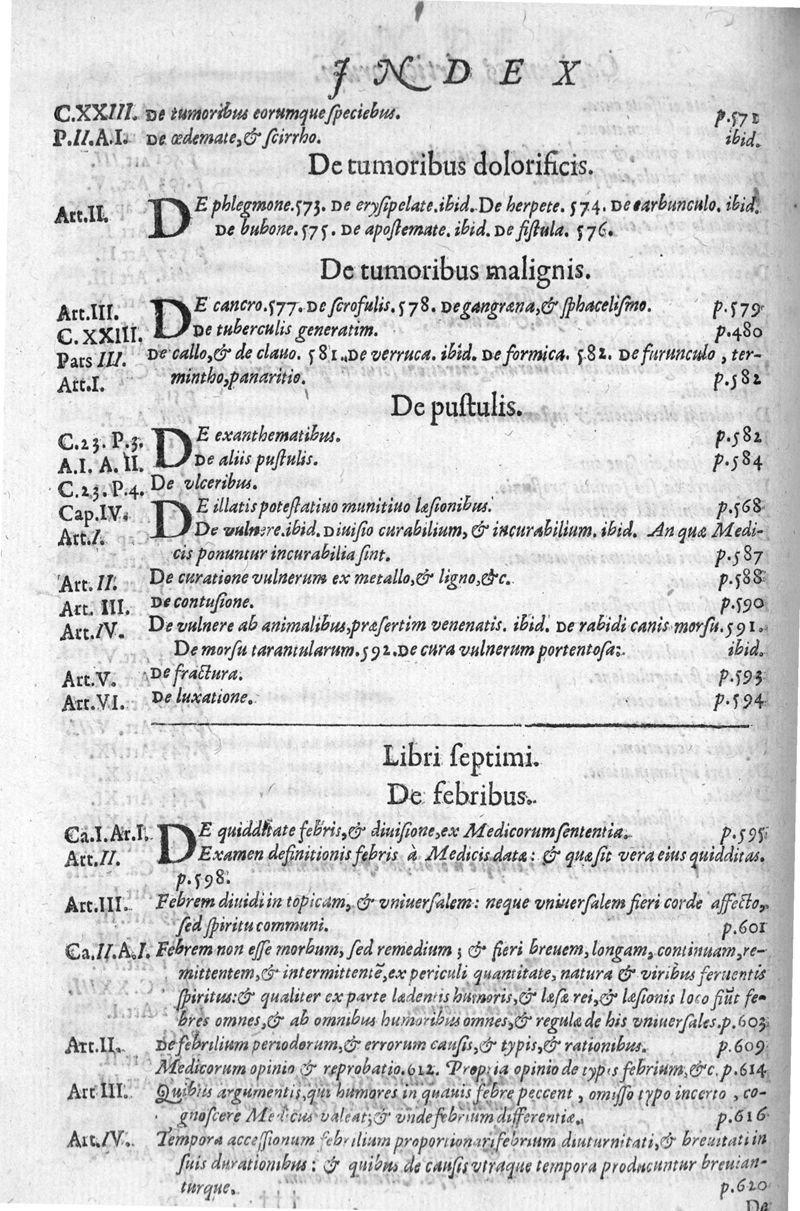 INDEX
C.XXIII. De tumoribus eorumque speciebus. p.571
P.II.A.I. De œdemate, & scirrho. ibid.
De tumoribus dolorificis.
Art.II. DE phlegmone.573. De erysipelate.ibid. De herpete. 574. De carbunculo. ibid.
De bubone.575. De apostemate. ibid. De fistula. 576.
De tumoribus malignis.
Art.III. DE cancro.577. De scrofulis.578. De gangræna, & sphacelismo. p.579
C.XXIII. De tuberculis generatim. p.480
Pars III. De callo, & de clauo. 581. De verruca. ibid. De formica. 582. De furunculo, ter-
Art.I. mintho, panaritio. p.582
De pustulis.
C.23. P.3. DE exanthematibus. p.582
A.I. A.II. De aliis pustulis. p.584
C.23.P.4. De vlceribus.
Cap.IV. DE illatis potestatiuo munitiuo læsionibus. p.568
Art.I. De vulnere.ibid. Diuisio curabilium, & incurabilium. ibid. An quæ Medi-
cis ponuntur incurabilia sint. p.587
Art.II. De curatione vulnerum ex metallo, & ligno, &c. p.588
Art.III. De contusione. p.590
Art.IV. De vulnere ab animalibus, præsertim venenatis. ibid. De rabidi canis morsu.591.
De morsu tarantularum.592. De cura vulnerum portentosa. ibid.
Art.V. De fractura. p.593
Art.VI. De luxatione. p.594
Libri septimi.
De febribus.
Ca.I.Ar.I. DE quidditate febris, & diuisione, ex Medicorum sententia. p.595
Art.II. Examen definitionis febris à Medicis datæ: & quæ sit vera eius quidditas.
p.598.
Art.III. Febrem diuidi in topicam, & vniuersalem: neque vniuersalem fieri corde affecto,
sed spiritu communi. p.601
Ca.II.A.I. Febrem non esse morbum, sed remedium; & fieri breuem, longam, continuam, re-
mittentem, & intermittentē, ex periculi quantitate, natura & viribus feruentis
spiritus: & qualiter ex parte lædentis humoris, & læsæ rei, & læsionis loco fiūt fe-
bres omnes, & ab omnibus humoribus omnes, & regulæ de his vniuersales. p.603
Art.II. De febrilium periodorum, & errorum causis, & typis, & rationibus. p.609
Medicorum opinio & reprobatio.612. Propria opinio de typis febrium, &c. p.614
Art III. Quibus argumentis, qui humores in quauis febre peccent, omisso typo incerto, co-
gnoscere Medicus valeat; & vnde febrium differentiæ. p.616
Art.IV. Tempora accessionum febrilium proportionari febrium diuturnitati, & breuitati in
suis durationibus: & quibus de causis vtraque tempora producuntur breuian-
turque. p.620
De